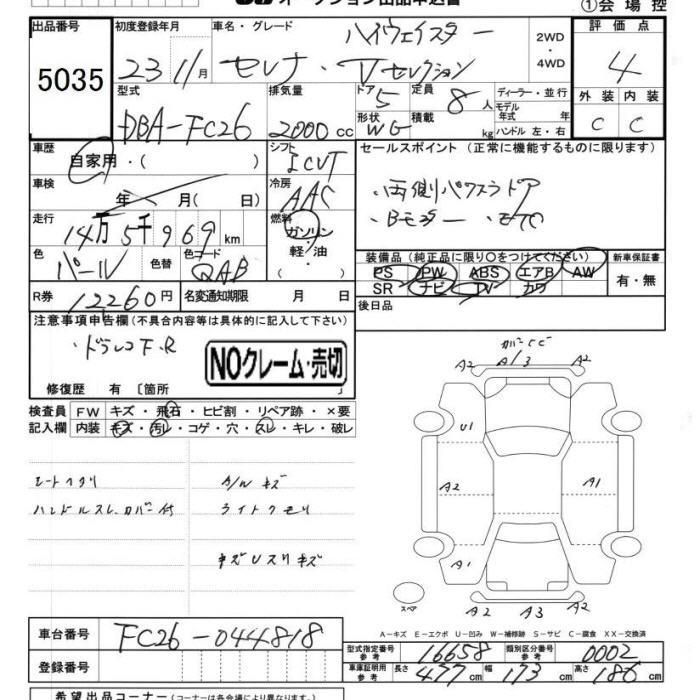 ①会場控
出品番号 初度登録年月 車名・グレード ハイウェイスター 2WD・4WD 評価点
5035 23 11月 セレナ・Vセレクション 4
型式 排気量 ドア 5 定員 8人 ディーラー・並行 外装 内装
DBA-FC26 2000cc 形状 WG 積載 kg モデル年式 年 ハンドル 左・右 C C
車歴 自家用・( ) シフト ICVT セールスポイント (正常に機能するものに限ります)
車検 年 月(日) 冷房 AAC ・両側パワスラドア
走行 14万5千969km 燃料 ガソリン・軽/油 ・Bモニター ・ETC
色 パール 色替 色コード QAB 装備品 (純正品に限り○をつけてください) 新車保証書
PS PW ABS エアB AW 有・無
R券 12260円 名変通知期限 月 日 SR ナビ TV カワ
注意事項申告欄(不具合内容等は具体的に記入して下さい) 後日品
・ドラレコF.R
NOクレーム・売切
修復歴 有 〔箇所
カバーCC
A2 A13 A2
検査員 FW キズ・飛石・ヒビ割・リペア跡・×要
記入欄 内装 キズ・汚レ・コゲ・穴・スレ・キレ・破レ
U1
シートヘタリ A/Wキズ A2 A1
ハンドルスレ、カバー付 ライトクモリ
キズUスリキズ A1 A2
スペア A2 A3 A2
A-キズ E-エクボ U-凹み W-補修跡 S-サビ C-腐食 XX-交換済
車台番号 FC26-044818
型式指定番号 参考 16658 類別区分番号 参考 0002
登録番号 車庫証明用 参考 長さ 477cm 幅 173cm 高さ 186cm
希望出品コーナー